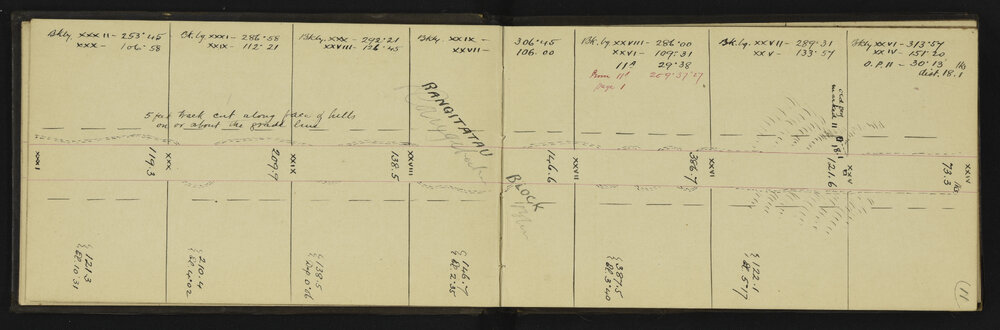 Bkby. XXXII - 253°45
XXX - 106.58
Ck. by. XXXI - 286°58
XXIX - 112°21
Bkby. XXX - 292°21
XXVIII - 126°45
Bkby. XXIX - 306°45
XXVII - 106.00
Bk. by. XXVIII - 286°00
XXVI - 109°31
11A 29°38
From 11A 209°37'27
page 1
Bk. by. XXVII - 289°31
XXV - 133°57
Bkby XXVI - 313°57
XXIV - 151°20
O.P. 11 - 30°13' lks
dist. 18.1
5 feet track cut along face of hills
on or about the grade line
RANGITATAU
BLOCK
old peg
marked 11
18.1
XXXI
119.3
XXX
209.7
XXIX
138.5
XXVIII
146.6
XXVII
386.7
XXVI
121.6
XXV
73.3 lks
XXIV
121.3
10°31
210.4
4°02
138.5
0°16
146.7
2°35
387.5
3°40
122.1
5°17
11